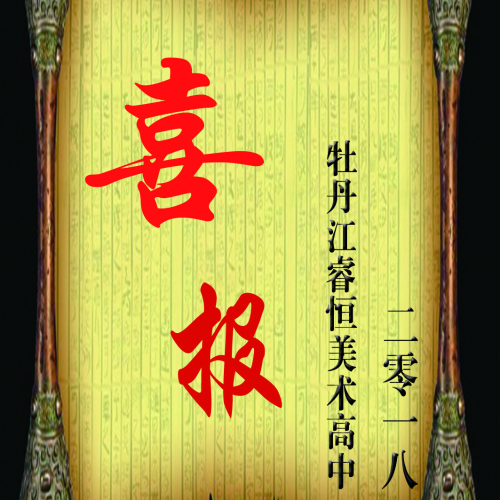 喜报
牡丹江睿恒美术高中
二零一八